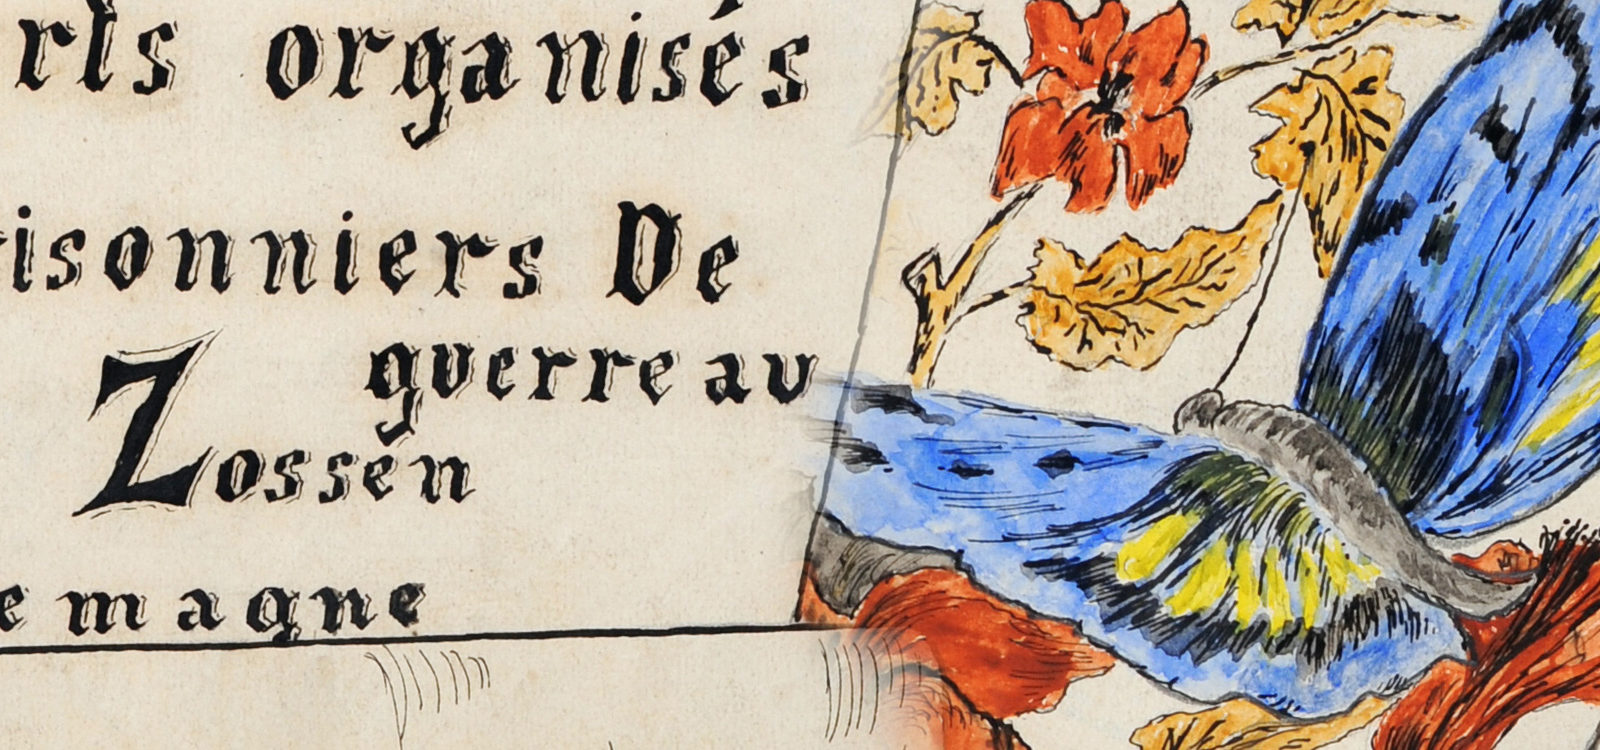 rts organisés
isonniers De
guerre au
Zossen
emagne